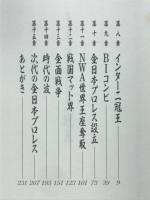 第八章 インター二冠王 9
第九章 BIコンビ 29
第十章 全日本プロレス設立 73
第十一章 NWA世界王座奪取 101
第十二章 戦国マット界 123
第十三章 全面戦争 151
第十四章 時代の波 195
第十五章 次代の全日本プロレス 207
あとがき 231